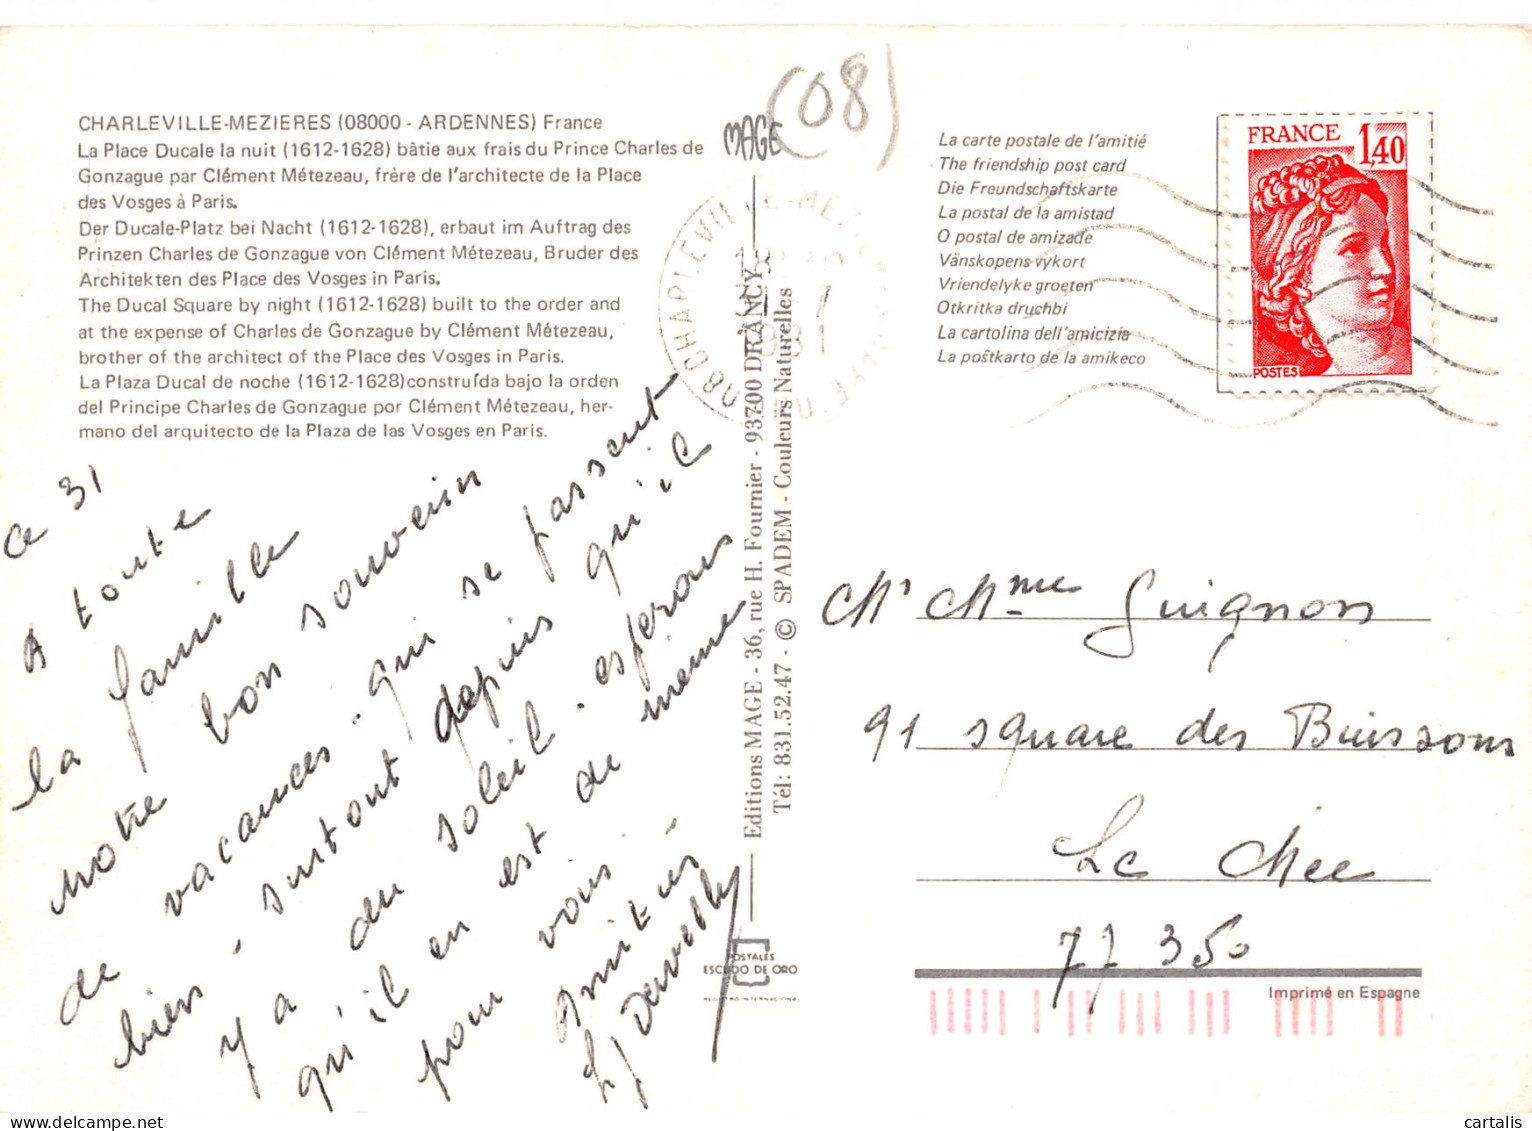 CHARLEVILLE-MEZIERES (08000 - ARDENNES) France
La Place Ducale la nuit (1612-1628) bâtie aux frais du Prince Charles de
Gonzague par Clément Métezeau, frère de l'architecte de la Place
des Vosges à Paris.
Der Ducale-Platz bei Nacht (1612-1628), erbaut im Auftrag des
Prinzen Charles de Gonzague von Clément Métezeau, Bruder des
Architekten des Place des Vosges in Paris.
The Ducal Square by night (1612-1628) built to the order and
at the expense of Charles de Gonzague by Clément Métezeau,
brother of the architect of the Place des Vosges in Paris.
La Plaza Ducal de noche (1612-1628) construída bajo la orden
del Principe Charles de Gonzague por Clément Métezeau, her-
mano del arquitecto de la Plaza de las Vosges en Paris.
ce 31
A toute
la famille
notre bon souvenir
de vacances . qui se passent
bien - surtout depuis qu'il
y a du soleil . espérons
qu'il en est de même
pour vous -
Amitiés
MAGE
(08)
08 CHARLEVILLE-MEZIERES
Editions MAGE - 36, rue H. Fournier - 93700 DRANCY
Tél: 831.52.47 - © SPADEM - Couleurs Naturelles
POSTALES
ESCUDO DE ORO
REGISTRO INTERNACIONAL
La carte postale de l'amitié
The friendship post card
Die Freundschaftskarte
La postal de la amistad
O postal de amizade
Vänskopens vykort
Vriendelyke groeten
Otkritka druchbi
La cartolina dell'amicizia
La poŝtkarto de la amikeco
FRANCE 1,40
POSTES
Mr Mme Guignon
91 square des Buissons
Le Mée
77350
Imprimé en Espagne